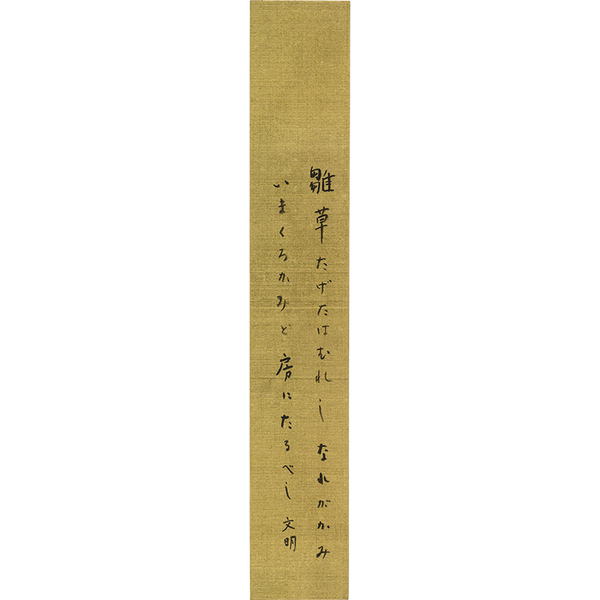 雛草たばたはむれしなれがかみ
いまくろかみと房にたるべし 文明